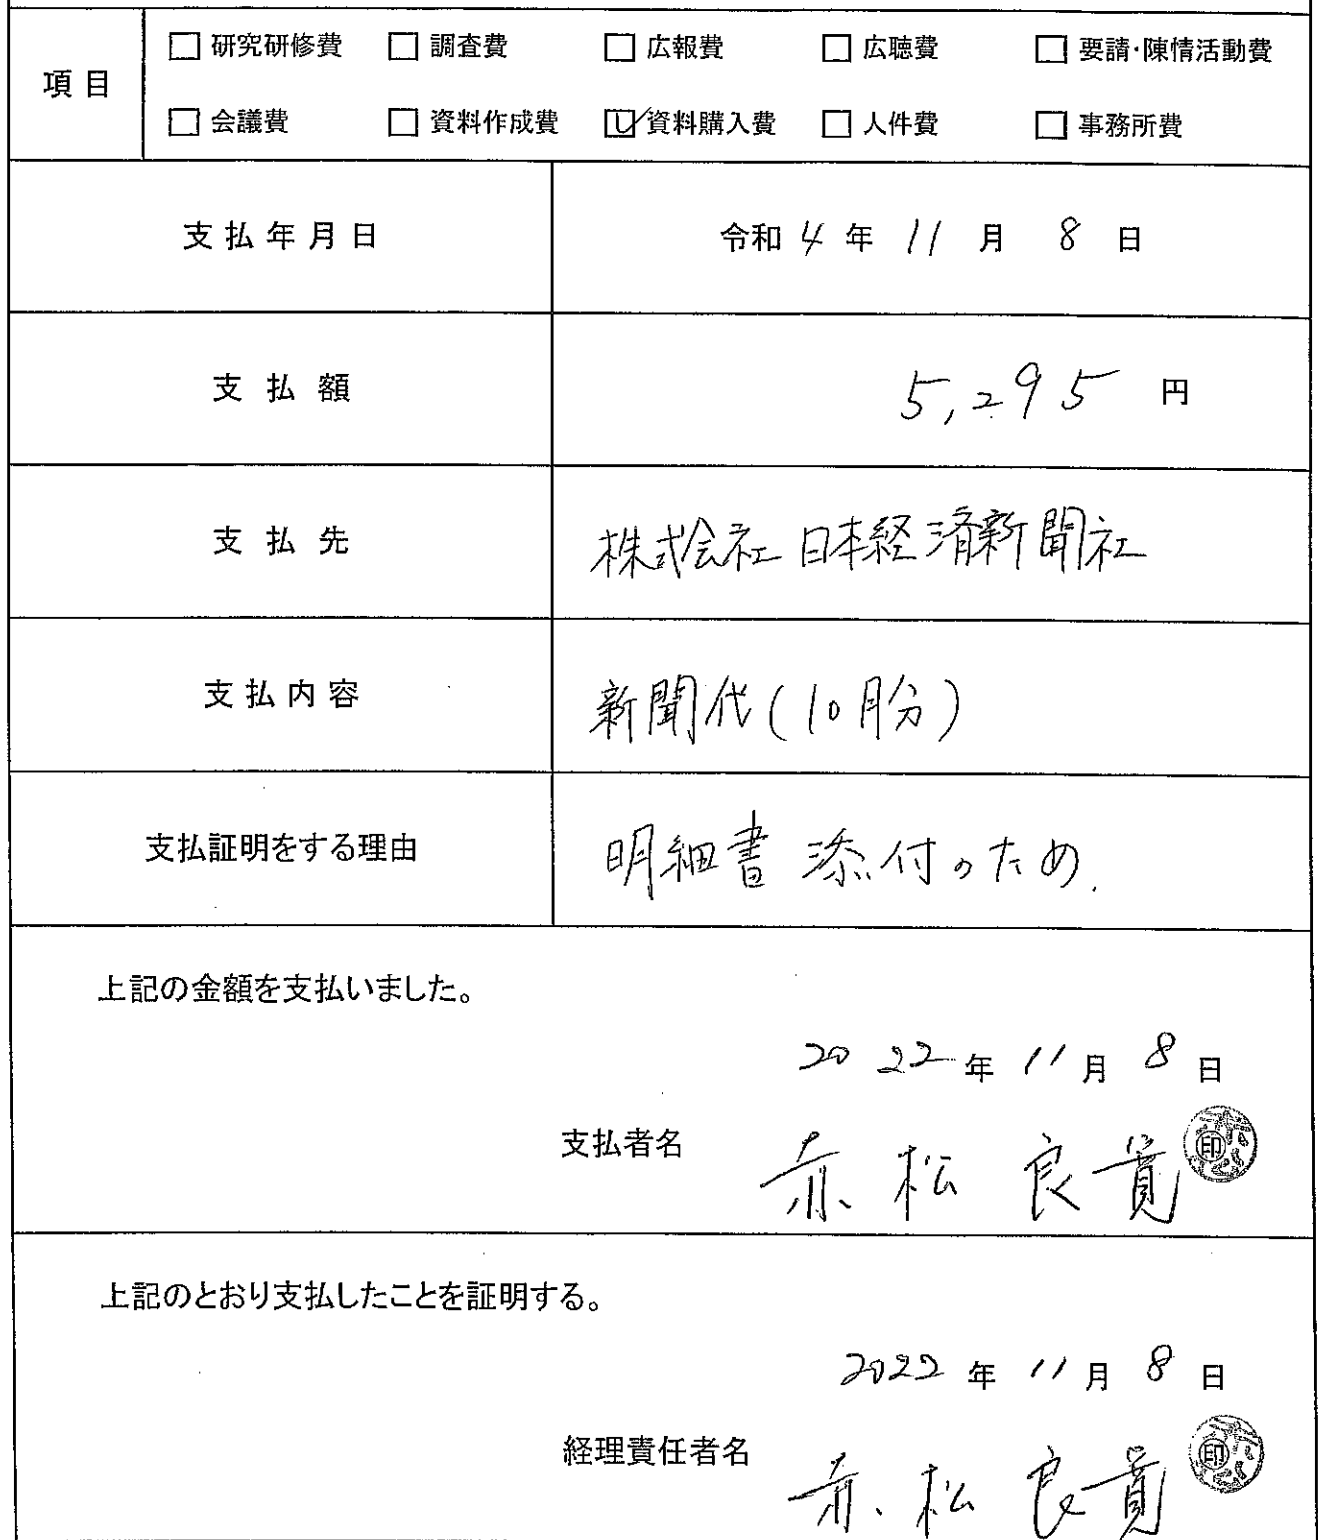 □ 研究研修費 □ 調査費 □ 広報費 □ 広聴費 □ 要請・陳情活動費
項目
□ 会議費 □ 資料作成費 ☑ 資料購入費 □ 人件費 □ 事務所費
支払年月日 令和 4 年 11 月 8 日
支払額 5,295 円
支払先 株式会社 日本経済新聞社
支払内容 新聞代(10月分)
支払証明をする理由 明細書 添付のため.
上記の金額を支払いました。
2022 年 11 月 8 日
支払者名 赤松 良寛 印
上記のとおり支払したことを証明する。
2022 年 11 月 8 日
経理責任者名 赤松 良寛 印